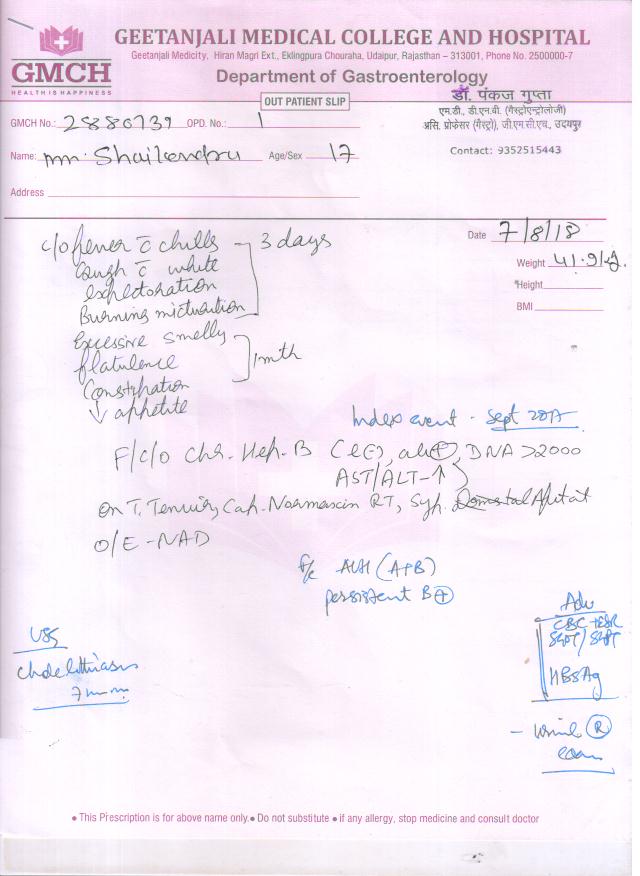 GEETANJALI MEDICAL COLLEGE AND HOSPITAL
Geetanjali Medicity, Hiran Magri Ext., Eklingpura Chouraha, Udaipur, Rajasthan – 313001, Phone No. 2500000-7
GMCH
HEALTH IS HAPPINESS
Department of Gastroenterology
OUT PATIENT SLIP
डॉ. पंकज गुप्ता
एम.डी., डी.एन.बी. (गैस्ट्रोएन्ट्रोलोजी)
असि. प्रोफेसर (गैस्ट्रो), जी.एम.सी.एच., उदयपुर
Contact: 9352515443
GMCH No.: 2886139 OPD. No.: 1
Name: Mr. Shailendra Age/Sex 17
Address
Date 7/8/18
Weight 41.9
Height
BMI
c/o fever c̄ chills – 3 days
Cough c̄ white
expectoration
Burning micturition
Excessive smelly
flatulence 1 mth
Constipation
↓ appetite
Index event - Sept 2017
F/c/o Chr. Hep. B (e(-), DNA >2000
AST/ALT-↑
on T. Tenvir, Cap. RT, Syp.
O/E - NAD
f/c AVH (A+B)
persistent B⊕
USG
Cholelithiasis
7mm
Adv
CBC + ESR
SGOT/SGPT
HBsAg
- Urine Ⓡ
exam
• This Prescription is for above name only. • Do not substitute • if any allergy, stop medicine and consult doctor